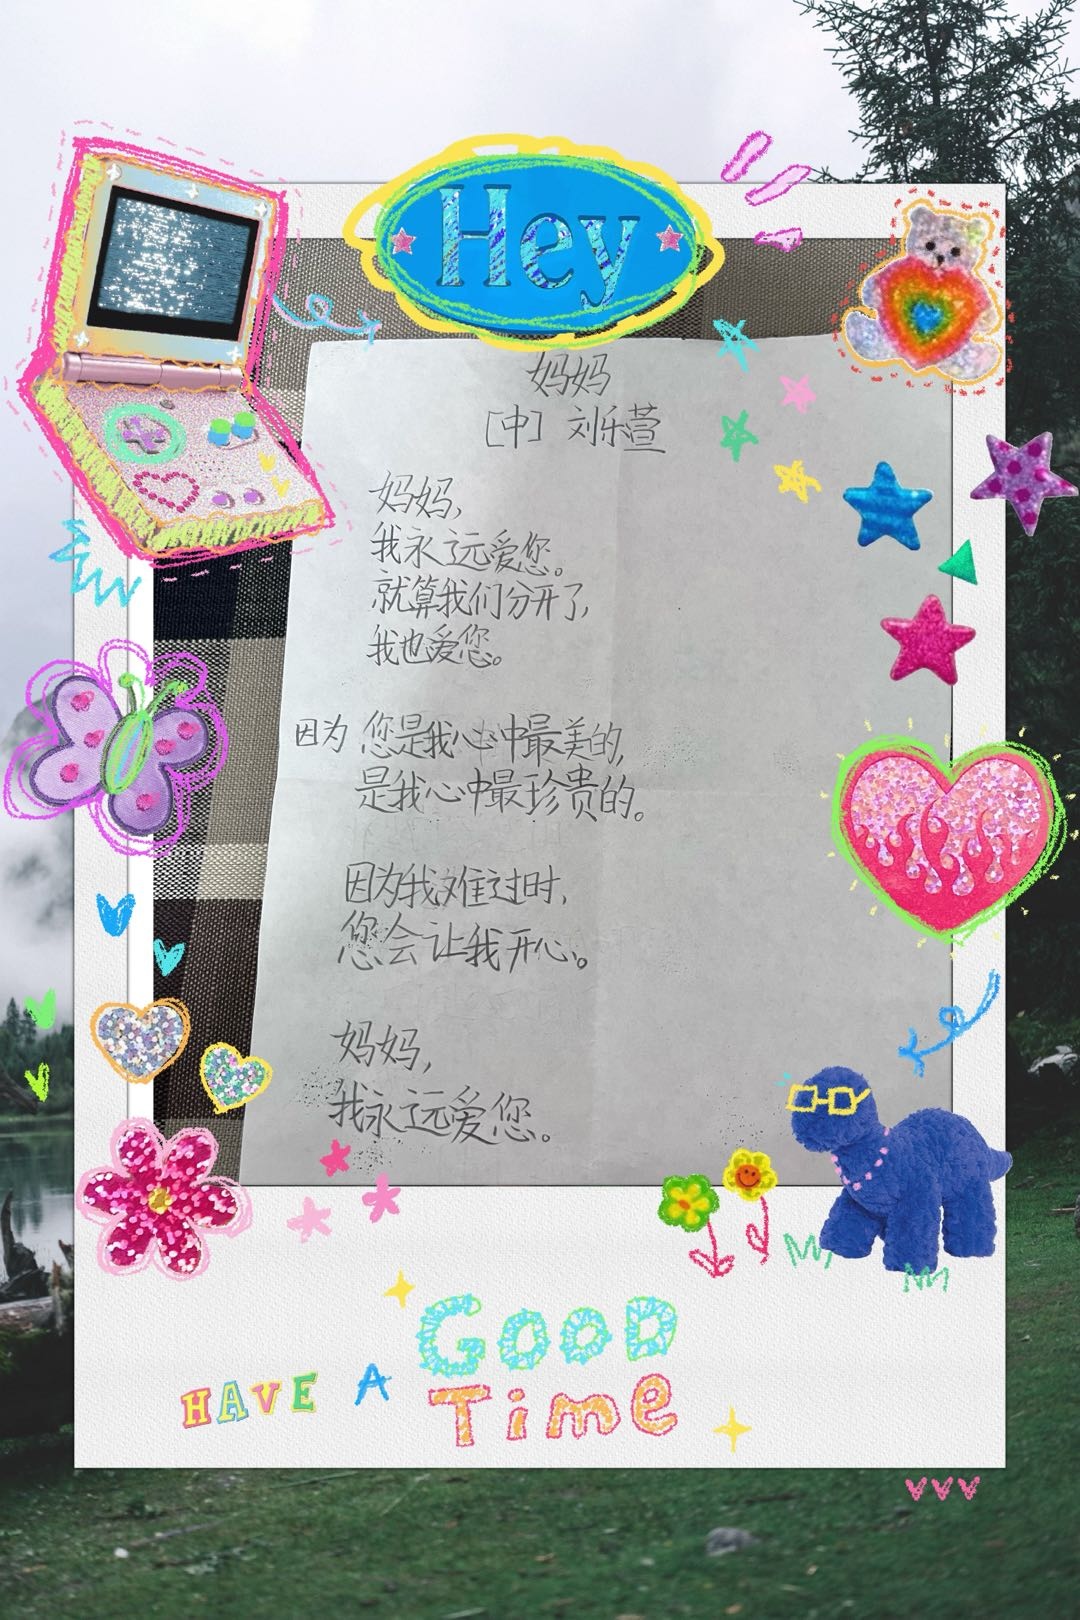 Hey
妈妈
[中] 刘乐萱
妈妈,
我永远爱您。
就算我们分开了,
我也爱您。
因为 您是我心中最美的,
是我心中最珍贵的。
因为我难过时,
您会让我开心。
妈妈,
我永远爱您。
GOOD
HAVE A Time